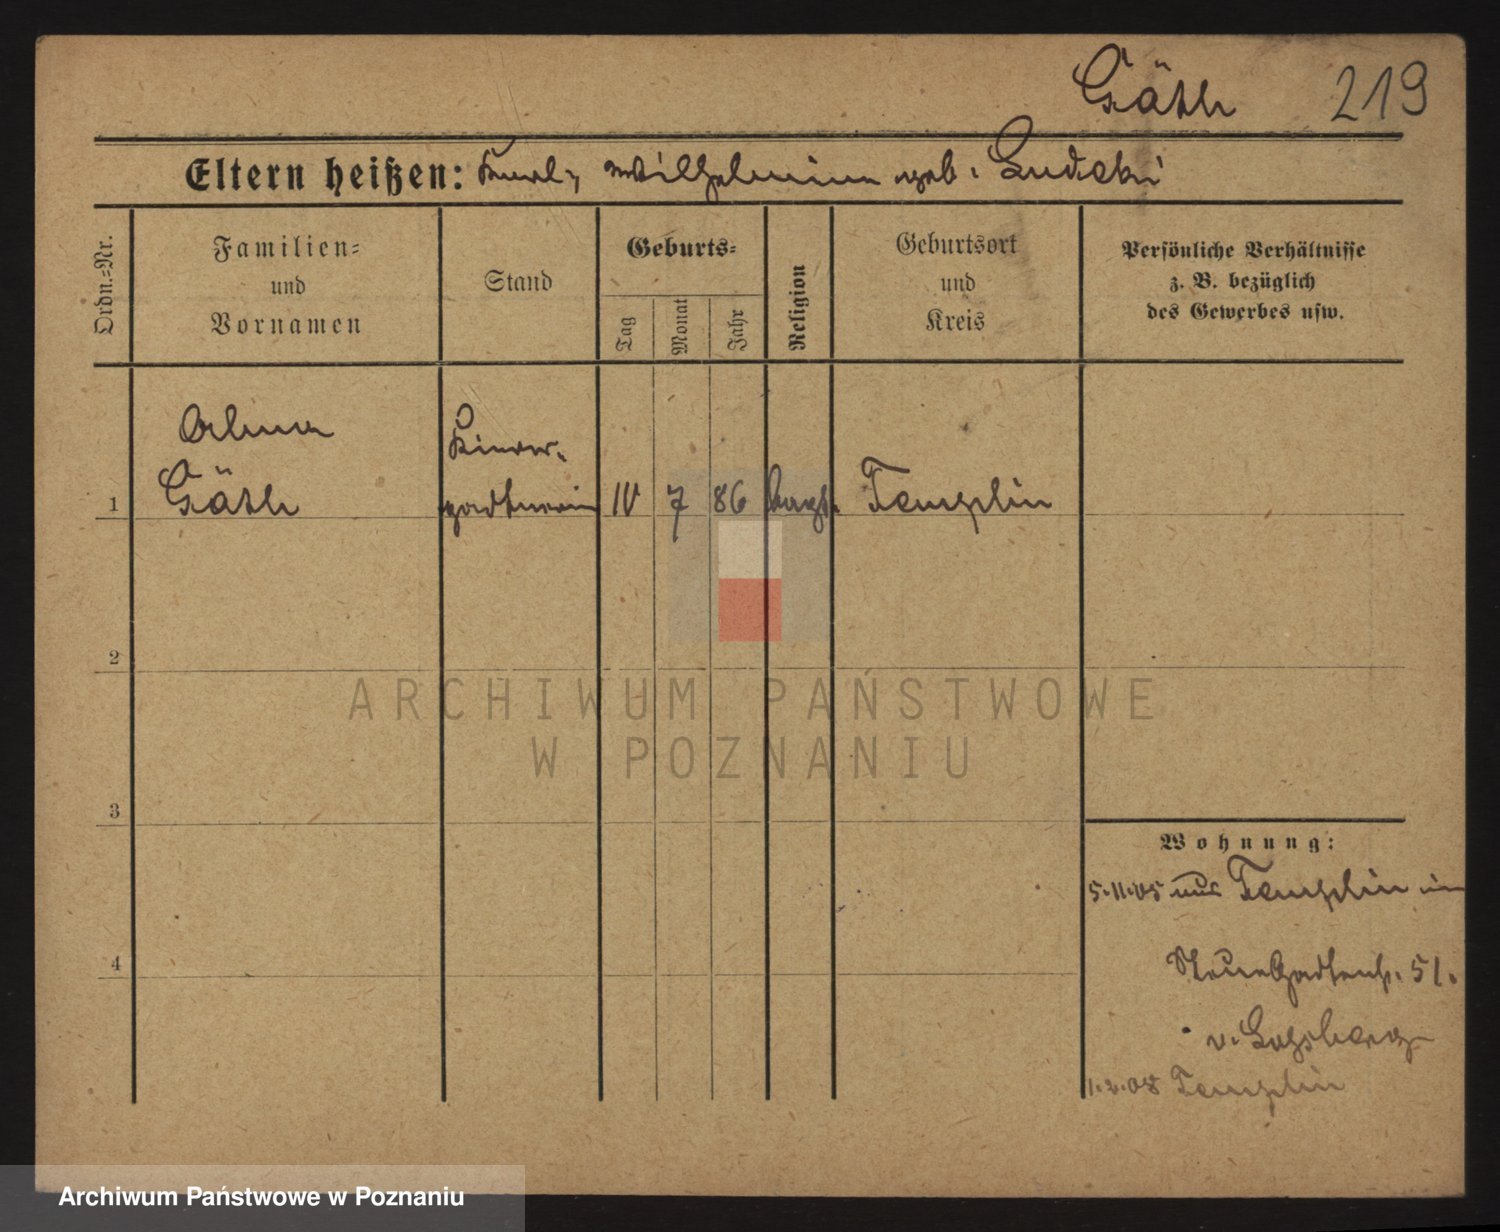 Gäth 219
Eltern heißen: Karl, Wilhelmine geb.
Ordn.-Nr.
Familien-
und
Vornamen
Stand
Geburts-
Tag
Monat
Jahr
Religion
Geburtsort
und
Kreis
Persönliche Verhältnisse
z. B. bezüglich
des Gewerbes usw.
Alma
Kinder-
1 Gäth gärtnerin IV 7 86 Templin
2
ARCHIWUM PAŃSTWOWE
W POZNANIU
3
Wohnung:
5.11.05 aus Templin
4
Neue Gartenstr. 51.
v.
1.2.08 Templin
Archiwum Państwowe w Poznaniu